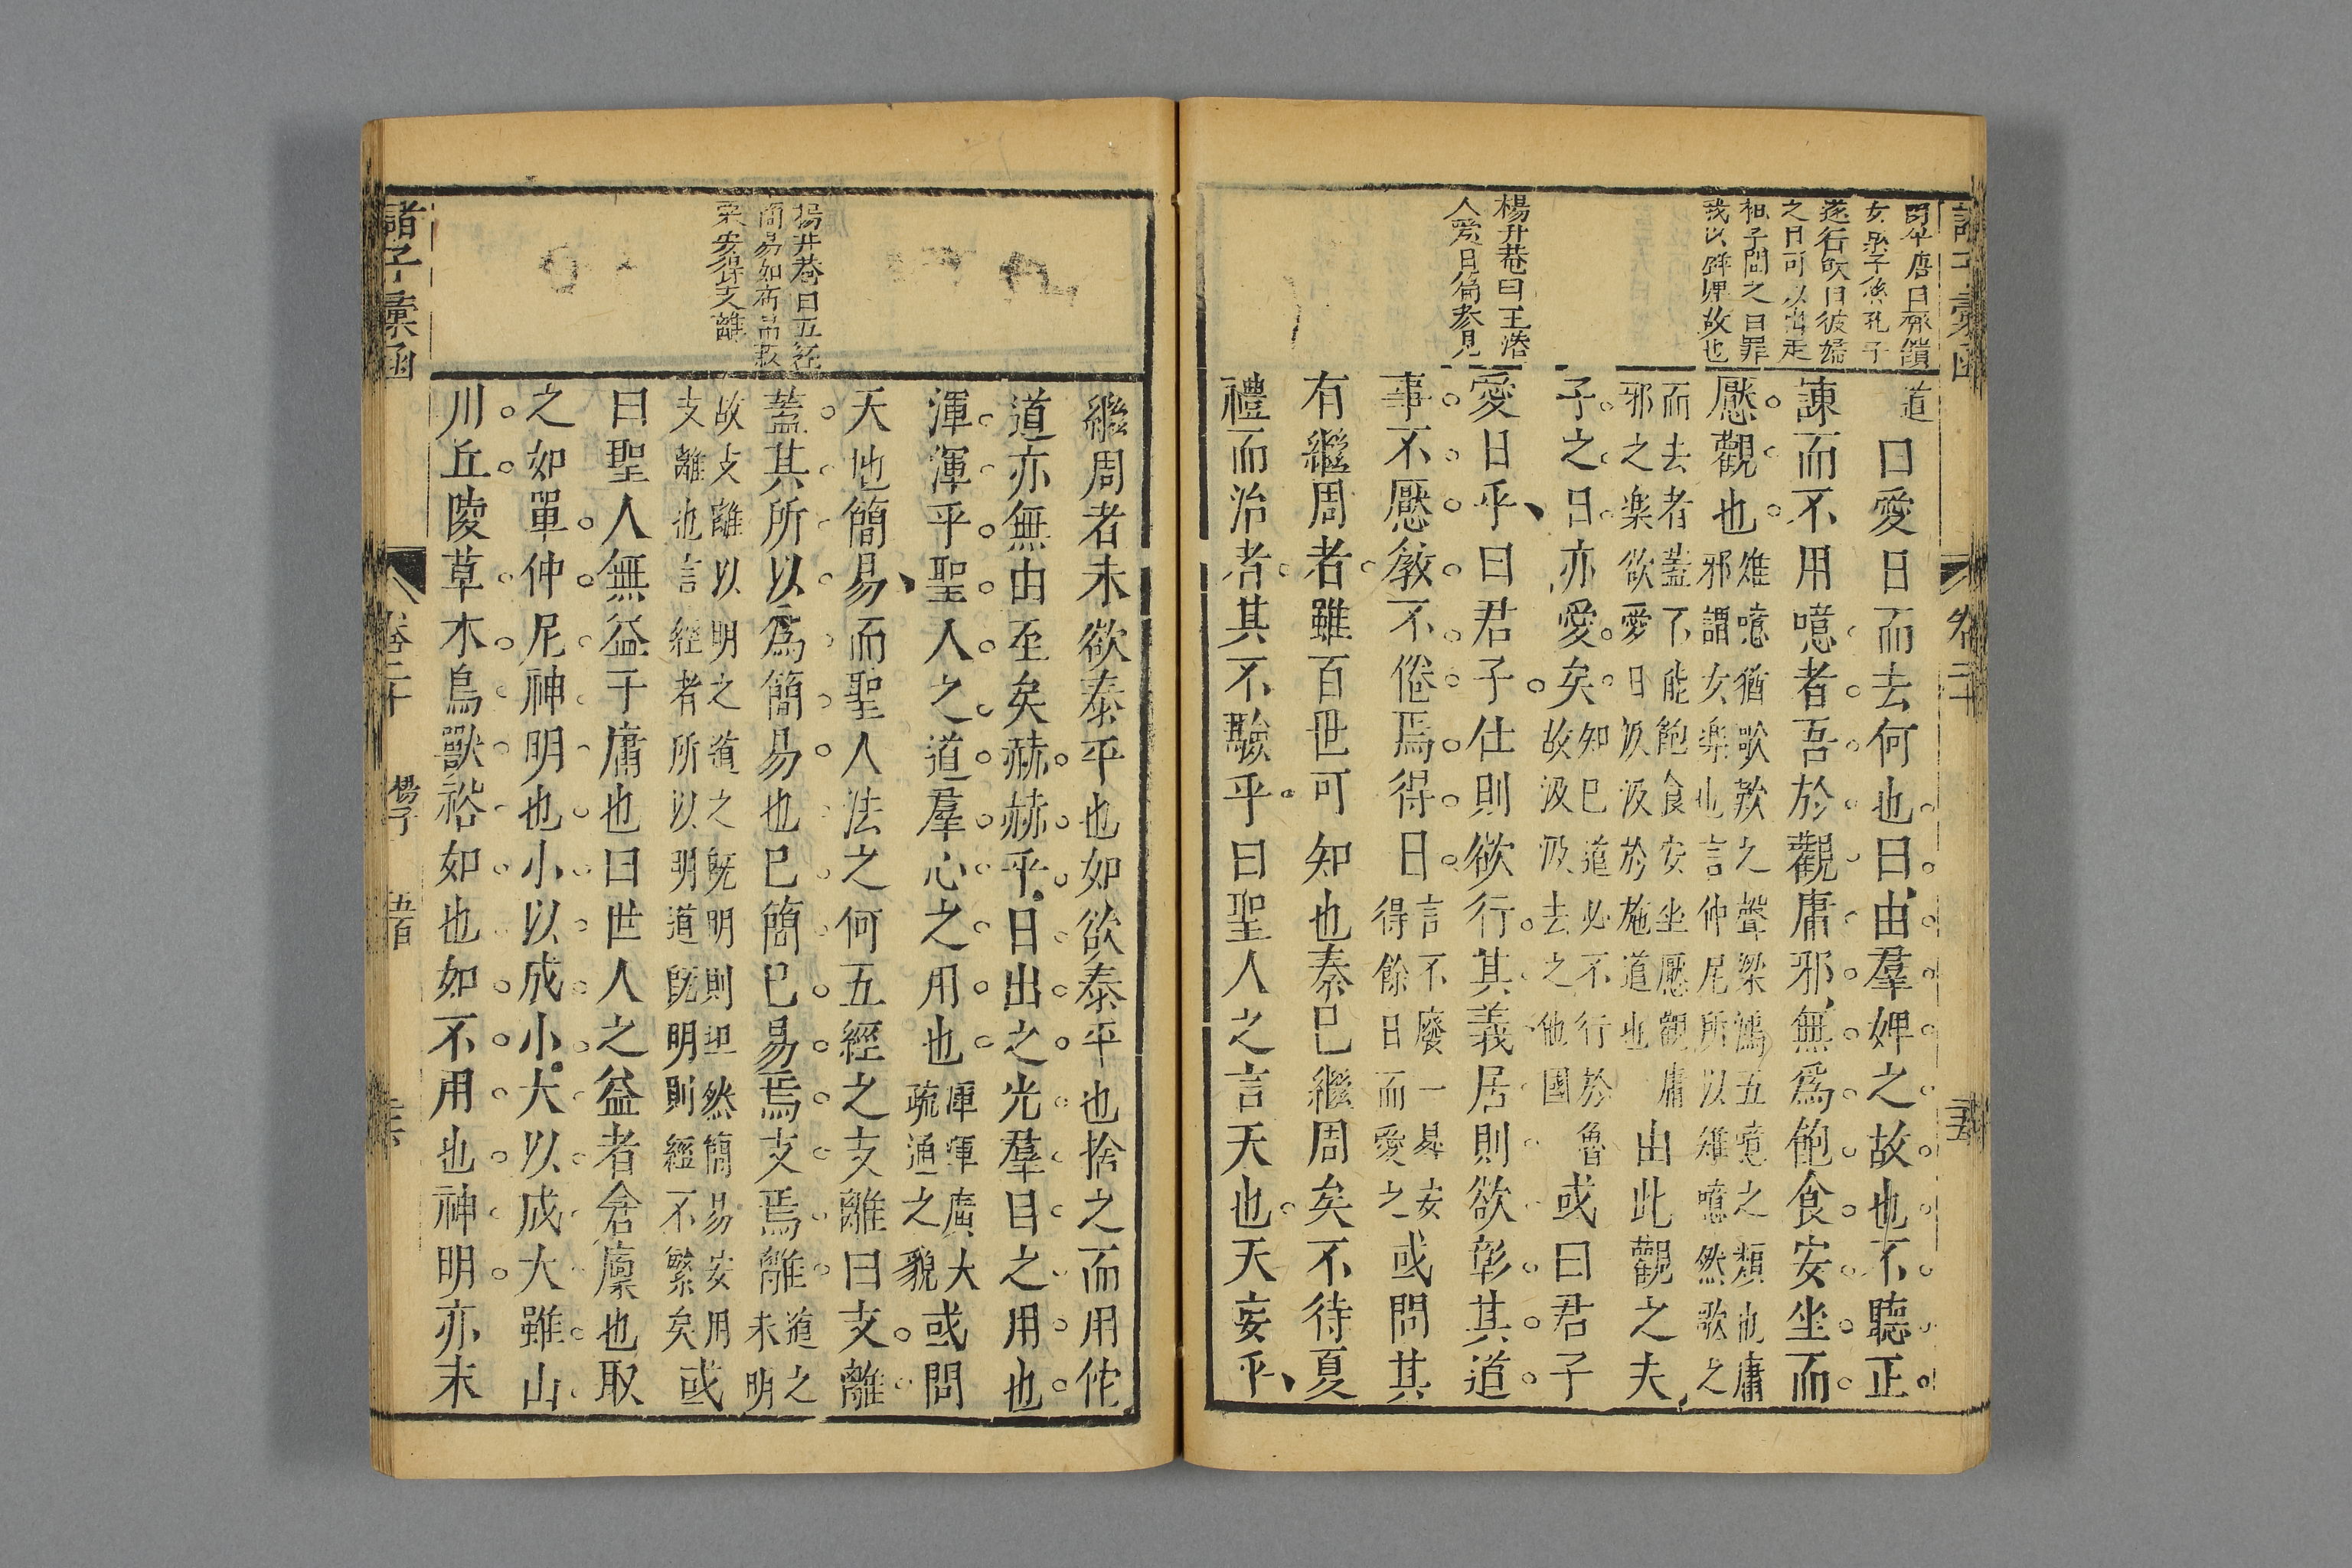 遂行歌曰彼婦
之口可以出走
楊升菴曰王㳫
人愛日篇參見
道
曰愛日而去何也曰由羣婢之故也不聽正
諫而不用噫者吾於觀庸邪無爲飽食安坐而
懕觀也
雉噫猶歌歎之聲梁鴻五噫之類也庸
邪謂女樂也言仲尼所以雉噫然歌之
而去者蓋不能飽食安坐懕觀庸
邪之樂欲愛日汲汲於施道也
由此觀之夫
子之日亦愛矣
知已道必不行於魯
故汲汲去之他國
或曰君子
愛日乎曰君子仕則欲行其義居則欲彰其道
事不懕敎不倦焉得日
言不廢一晷安
得餘日而愛之
或問其
有繼周者雖百世可知也秦已繼周矣不待夏
禮而治者其不驗乎曰聖人之言天也天妄乎
楊升菴曰五經
簡易如布帛菽
栗安得支離
繼周者未欲泰平也如欲泰平也捨之而用佗
道亦無由至矣赫赫乎日出之光羣目之用也
渾渾乎聖人之道羣心之用也
渾渾廣大
疏通之貌
或問
天地簡易而聖人法之何五經之支離曰支離
蓋其所以爲簡易也已簡已易焉支焉離
道之
未明
故支離以明之道之旣明則坦然簡易安用
支離也言經者所以明道旣明則經不繁矣
或
曰聖人無益于庸也曰世人之益者倉廩也取
之如單仲尼神明也小以成小大以成大雖山
川丘陵草木鳥獸裕如也如不用也神明亦末
諸子彙函
卷二十
楊子
五百